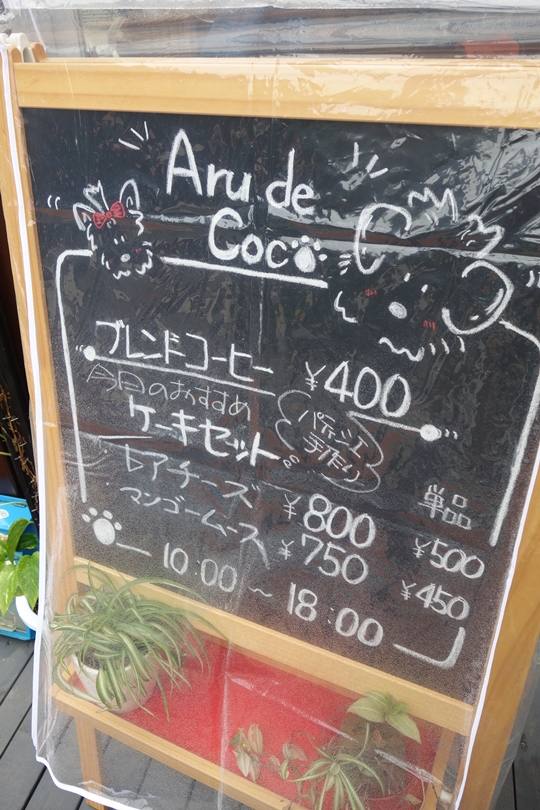 Aru de
Coco
ブレンドコーヒー ¥400
今日のおすすめ
ケーキセット
パティシエ
手作り
単品
レアチーズ ¥800 ¥500
マンゴームース ¥750 ¥450
10:00 ~ 18:00